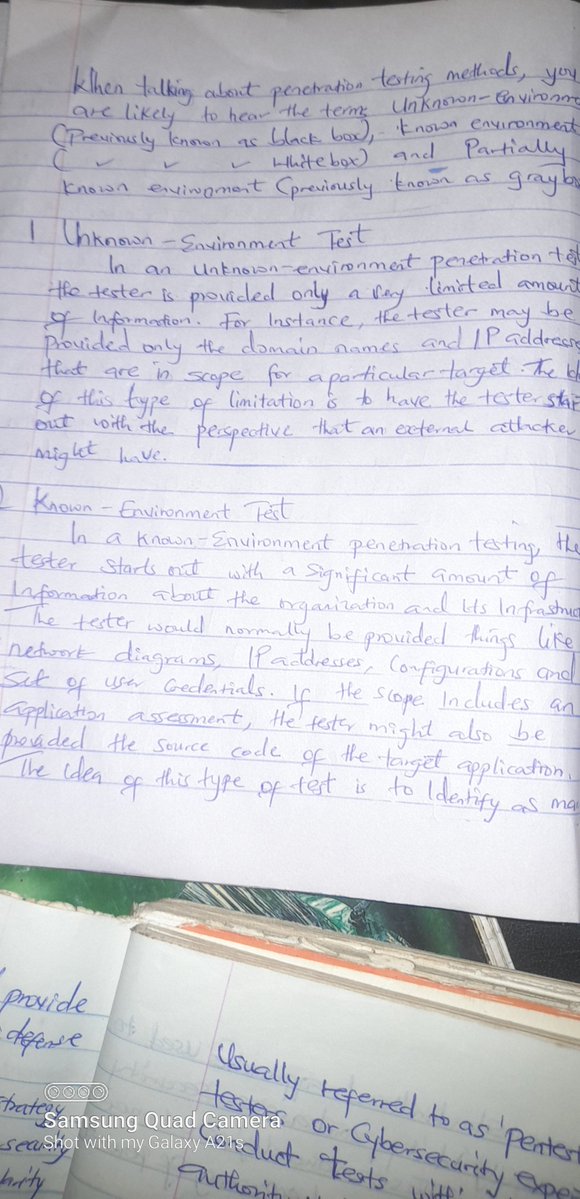 When talking about penetration testing methods, you
are likely to hear the terms Unknown-Environme
(Previously known as black box), known environment
( ✓ ✓ ✓ White box) and Partially
known environment (previously known as gray b
1 Unknown - Environment Test
In an Unknown-environment penetration te
the tester is provided only a very limited amount
of Information. For Instance, the tester may be
provided only the domain names and IP addresse
that are in scope for a particular target. The
of this type of limitation is to have the tester star
out with the perspective that an external attacker
might have.
Known - Environment Test
In a Known-Environment penetration testing, the
tester starts out with a significant amount of
Information about the organization and Its Infrastruc
The tester would normally be provided things like
network diagrams, IP addresses, Configurations and
set of user Credentials. If the scope Includes an
application assessment, the tester might also be
provided the source code of the target application.
The idea of this type of test is to Identify as ma
provide
defense
strategy
security
Usually referred to as 'pentest
testers or Cybersecurity expe
Conduct tests with
authorit
Samsung Quad Camera
Shot with my Galaxy A21s